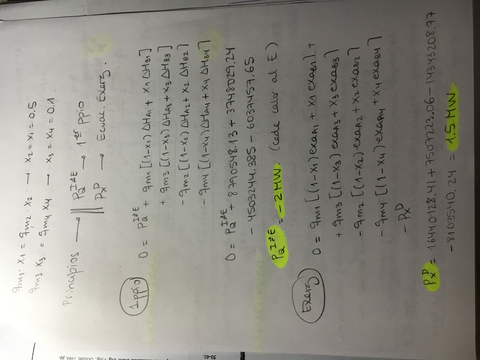 qm1 x1 = qm2 x2 → x2 = x1 = 0,5
qm3 x3 = qm4 x4 → x3 = x4 = 0.1
Principios → P_Q^I≠E → 1er ppio
P_X^D → Ecuac. Exerg.
1 ppio
0 = P_Q^I≠E + qm1 [(1-x1) ΔHA1 + x1 ΔHB1]
+ qm3 [(1-x3) ΔHA3 + x3 ΔHB3]
- qm2 [(1-x2) ΔHA2 + x2 ΔHB2]
- qm4 [(1-x4) ΔHA4 + x4 ΔHB4]
0 = P_Q^I≠E + 8790548.13 + 3748029.24
- 4503244.285 - 6037457.65
P_Q^I≠E = -2 MW. (cede calor al E)
Exerg
0 = qm1 [(1-x1) exaA1 + x1 exaB1] +
+ qm3 [(1-x3) exaA3 + x3 exaB3]
- qm2 [(1-x2) exaA2 + x2 exaB2]
- qm4 [(1-x4) exaA4 + x4 exaB4]
- P_X^D
P_X^D = 16440128,41 + 7507223,06 - 14343208,77
- 8103510,24 = 1.5 MW